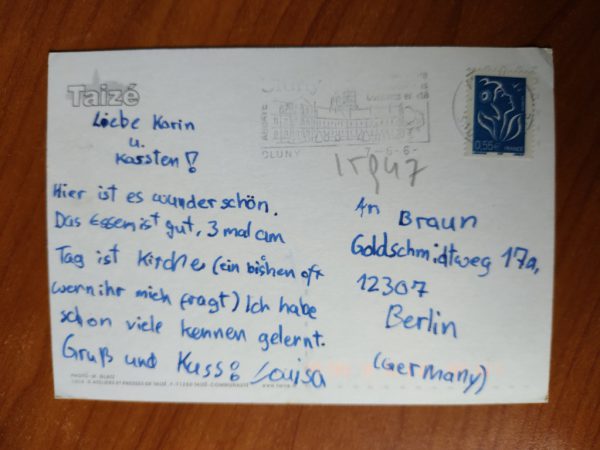 Taizé
Liebe Karin
u.
Karsten!
Hier ist es wunderschön.
Das Essen ist gut, 3 mal am
Tag ist Kirche (ein bishen oft
wenn ihr mich fragt) Ich habe
schon viele kennen gelernt.
Gruß und Kuss: Louisa
CLUNY
7-6-6-
0,55€ FRANCE
An Braun
Goldschmidtweg 17a,
12307
Berlin
(Germany)